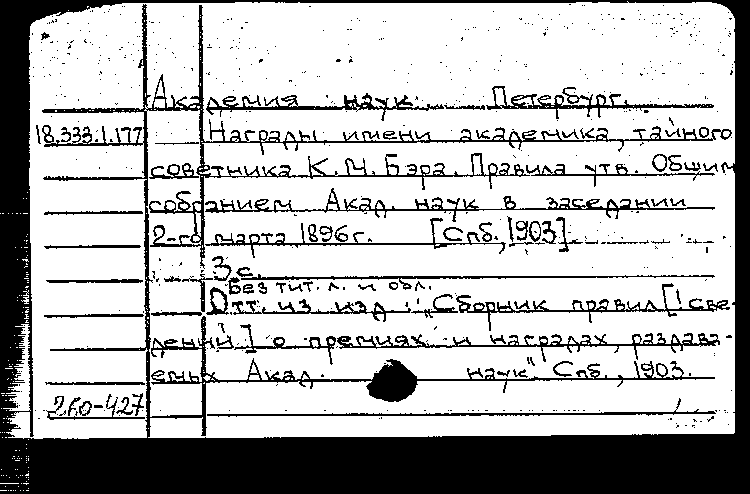 Академия наук. Петербург.
18.333.1.177 Награды имени академика, тайного
советника К.М.Бэра. Правила утв. Общим
собранием Акад. наук в заседании
2-го марта 1896г. [Спб., 1903].
3 с.
Без тит. л. и обл.
Отт. из изд.: "Сборник правил [! све-
дений] о премиях и наградах, раздава-
емых Акад. наук". Спб., 1903.
260-427